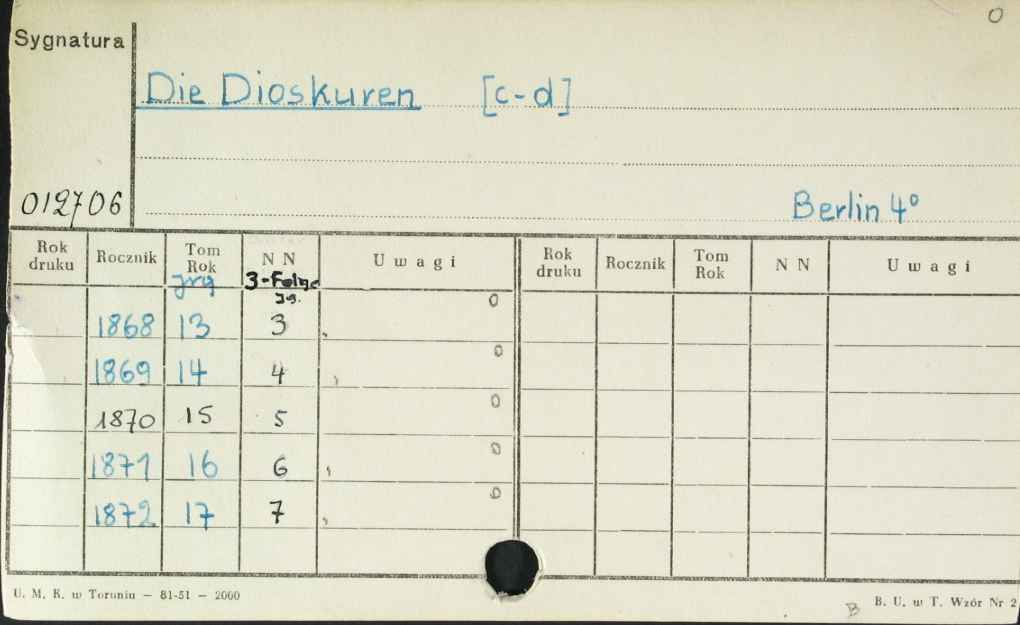 0
Sygnatura
Die Dioskuren [c-d]
012706
Berlin 4°
Rok druku Rocznik Tom Rok N N U w a g i Rok druku Rocznik Tom Rok N N U w a g i
Jrg 3-Folge Jg.
1868 13 3 0
1869 14 4 0
1870 15 5 0
1871 16 6 0
1872 17 7 0
U. M. K. w Toruniu — 81-51 — 2000
B B. U. w T. Wzór Nr 2